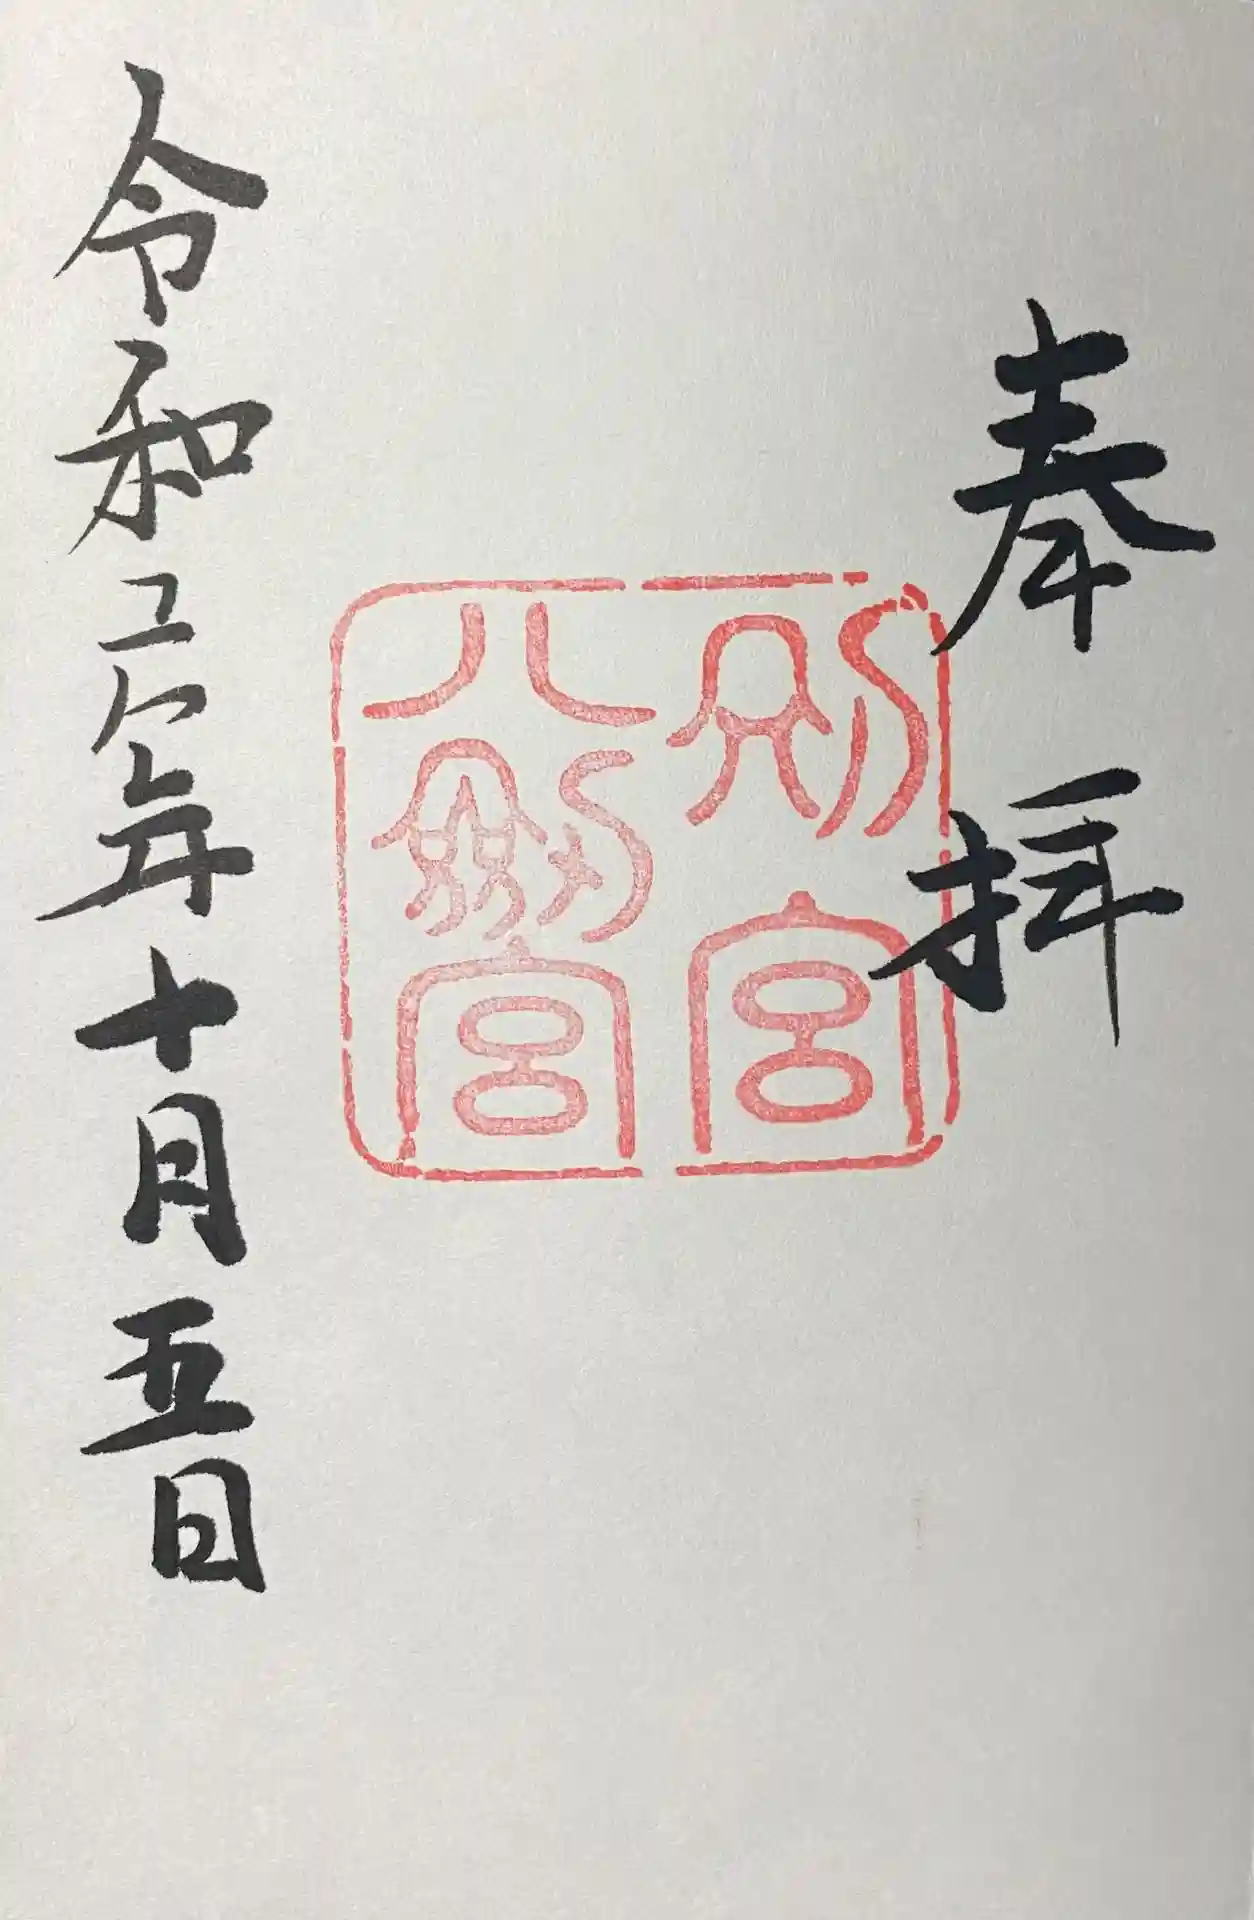 奉拝
別宮
八劔宮
令和元年十月五日